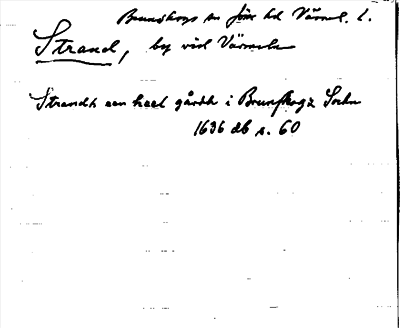 Brunskogs sn Jösse hd Värml. l.
Strand, by vid Värmeln
Strandh een heel gårdh i Brunskogz Sochn
1636 db s. 60